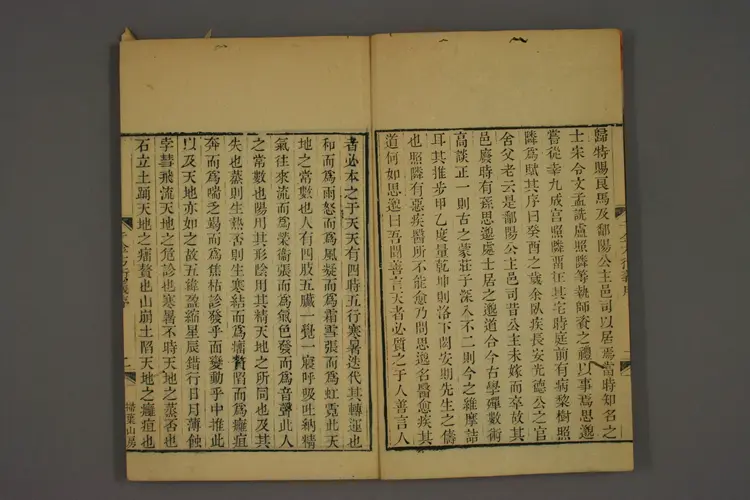 歸特賜良馬及鄱陽公主邑司以居焉當時知名之
士宋令文孟詵盧照隣等執師資之禮以事焉思邈
嘗從幸九成宮照隣畱在其宅時庭前有病棃樹照
隣爲賦其序曰癸酉之歲余臥疾長安光德公之官
舍父老云是鄱陽公主邑司昔公主未嫁而卒故其
邑廢時有孫思邈處士居之邈道合今古學殫數術
高談正一則古之蒙莊子深入不二則今之維摩詰
耳其推步甲乙度量乾坤則洛下閎安期先生之儔
也照隣有惡疾醫所不能愈乃問思邈名醫愈疾其
道何如思邈曰吾聞善言天者必質之于人善言人
者必本之于天天有四時五行寒暑迭代其轉運也
和而爲雨怒而爲風凝而爲霜雪張而爲虹霓此天
地之常數也人有四肢五臟一覺一寢呼吸吐納精
氣往來流而爲榮衞張而爲氣色發而爲音聲此人
之常數也陽用其形陰用其精天地之所同也及其
失也蒸則生熱否則生寒結而爲瘤贅陷而爲癰疽
奔而爲喘乏竭而爲焦枯診發乎面變動乎中推此
以及天地亦如之故五緯盈縮星辰錯行日月薄蝕
孛彗飛流天地之危診也寒暑不時天地之蒸否也
石立土踊天地之瘤贅也山崩土陷天地之癰疽也
掃葉山房